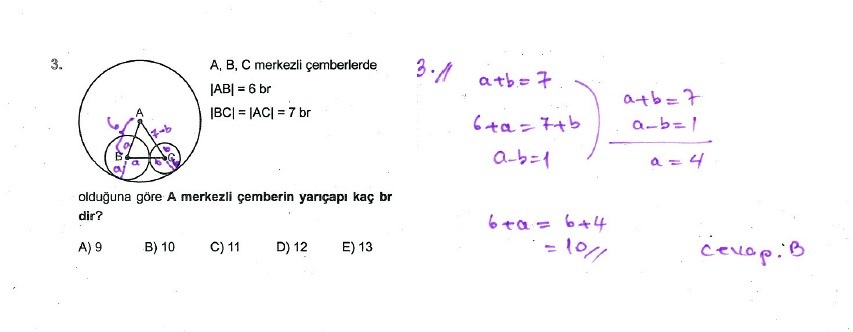 3.
A, B, C merkezli çemberlerde
|AB| = 6 br
|BC| = |AC| = 7 br
A
6
7-b
B
a
a
a
b
b
b
C
olduğuna göre A merkezli çemberin yarıçapı kaç br
dir?
A) 9 B) 10 C) 11 D) 12 E) 13
3.//
a+b=7
6+a=7+b
a-b=1
a+b=7
a-b=1
a=4
6+a = 6+4
= 10//
Cevap: B